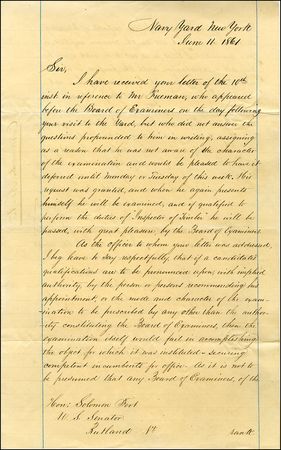 Navy Yard New York
June 11. 1861
Sir,
I have received your letter of the 10th
inst in reference to Mr Freeman, who appeared
before the Board of Examiners, on the day following
your visit to the Yard, but who did not answer the
questions propounded to him in writing, assigning
as a reason that he was not aware of the character
of the examination and would be pleased to have it
deferred until Monday or Tuesday of this week. His
request was granted, and when he again presents
himself he will be examined, and if qualified to
perform the duties of Inspector of Timber he will be
passed, with great pleasure, by the Board of Examiners
As the officer to whom your letter was addressed,
I beg leave to say respectfully, that if a candidates
qualifications are to be pronounced upon, with implied
authority, by the person or persons recommending his
appointment, or the mode and character of the exam-
ination to be prescribed by any other than the author-
ity constituting the Board of Examiners, then the
examination itself would fail in accomplishing
the object for which it was instituted - securing
competent incumbents for office. As it is not to
be presumed that any Board of Examiners, of the
Hon: Solomon Foot
U. S. Senator
Rutland Vt
rank